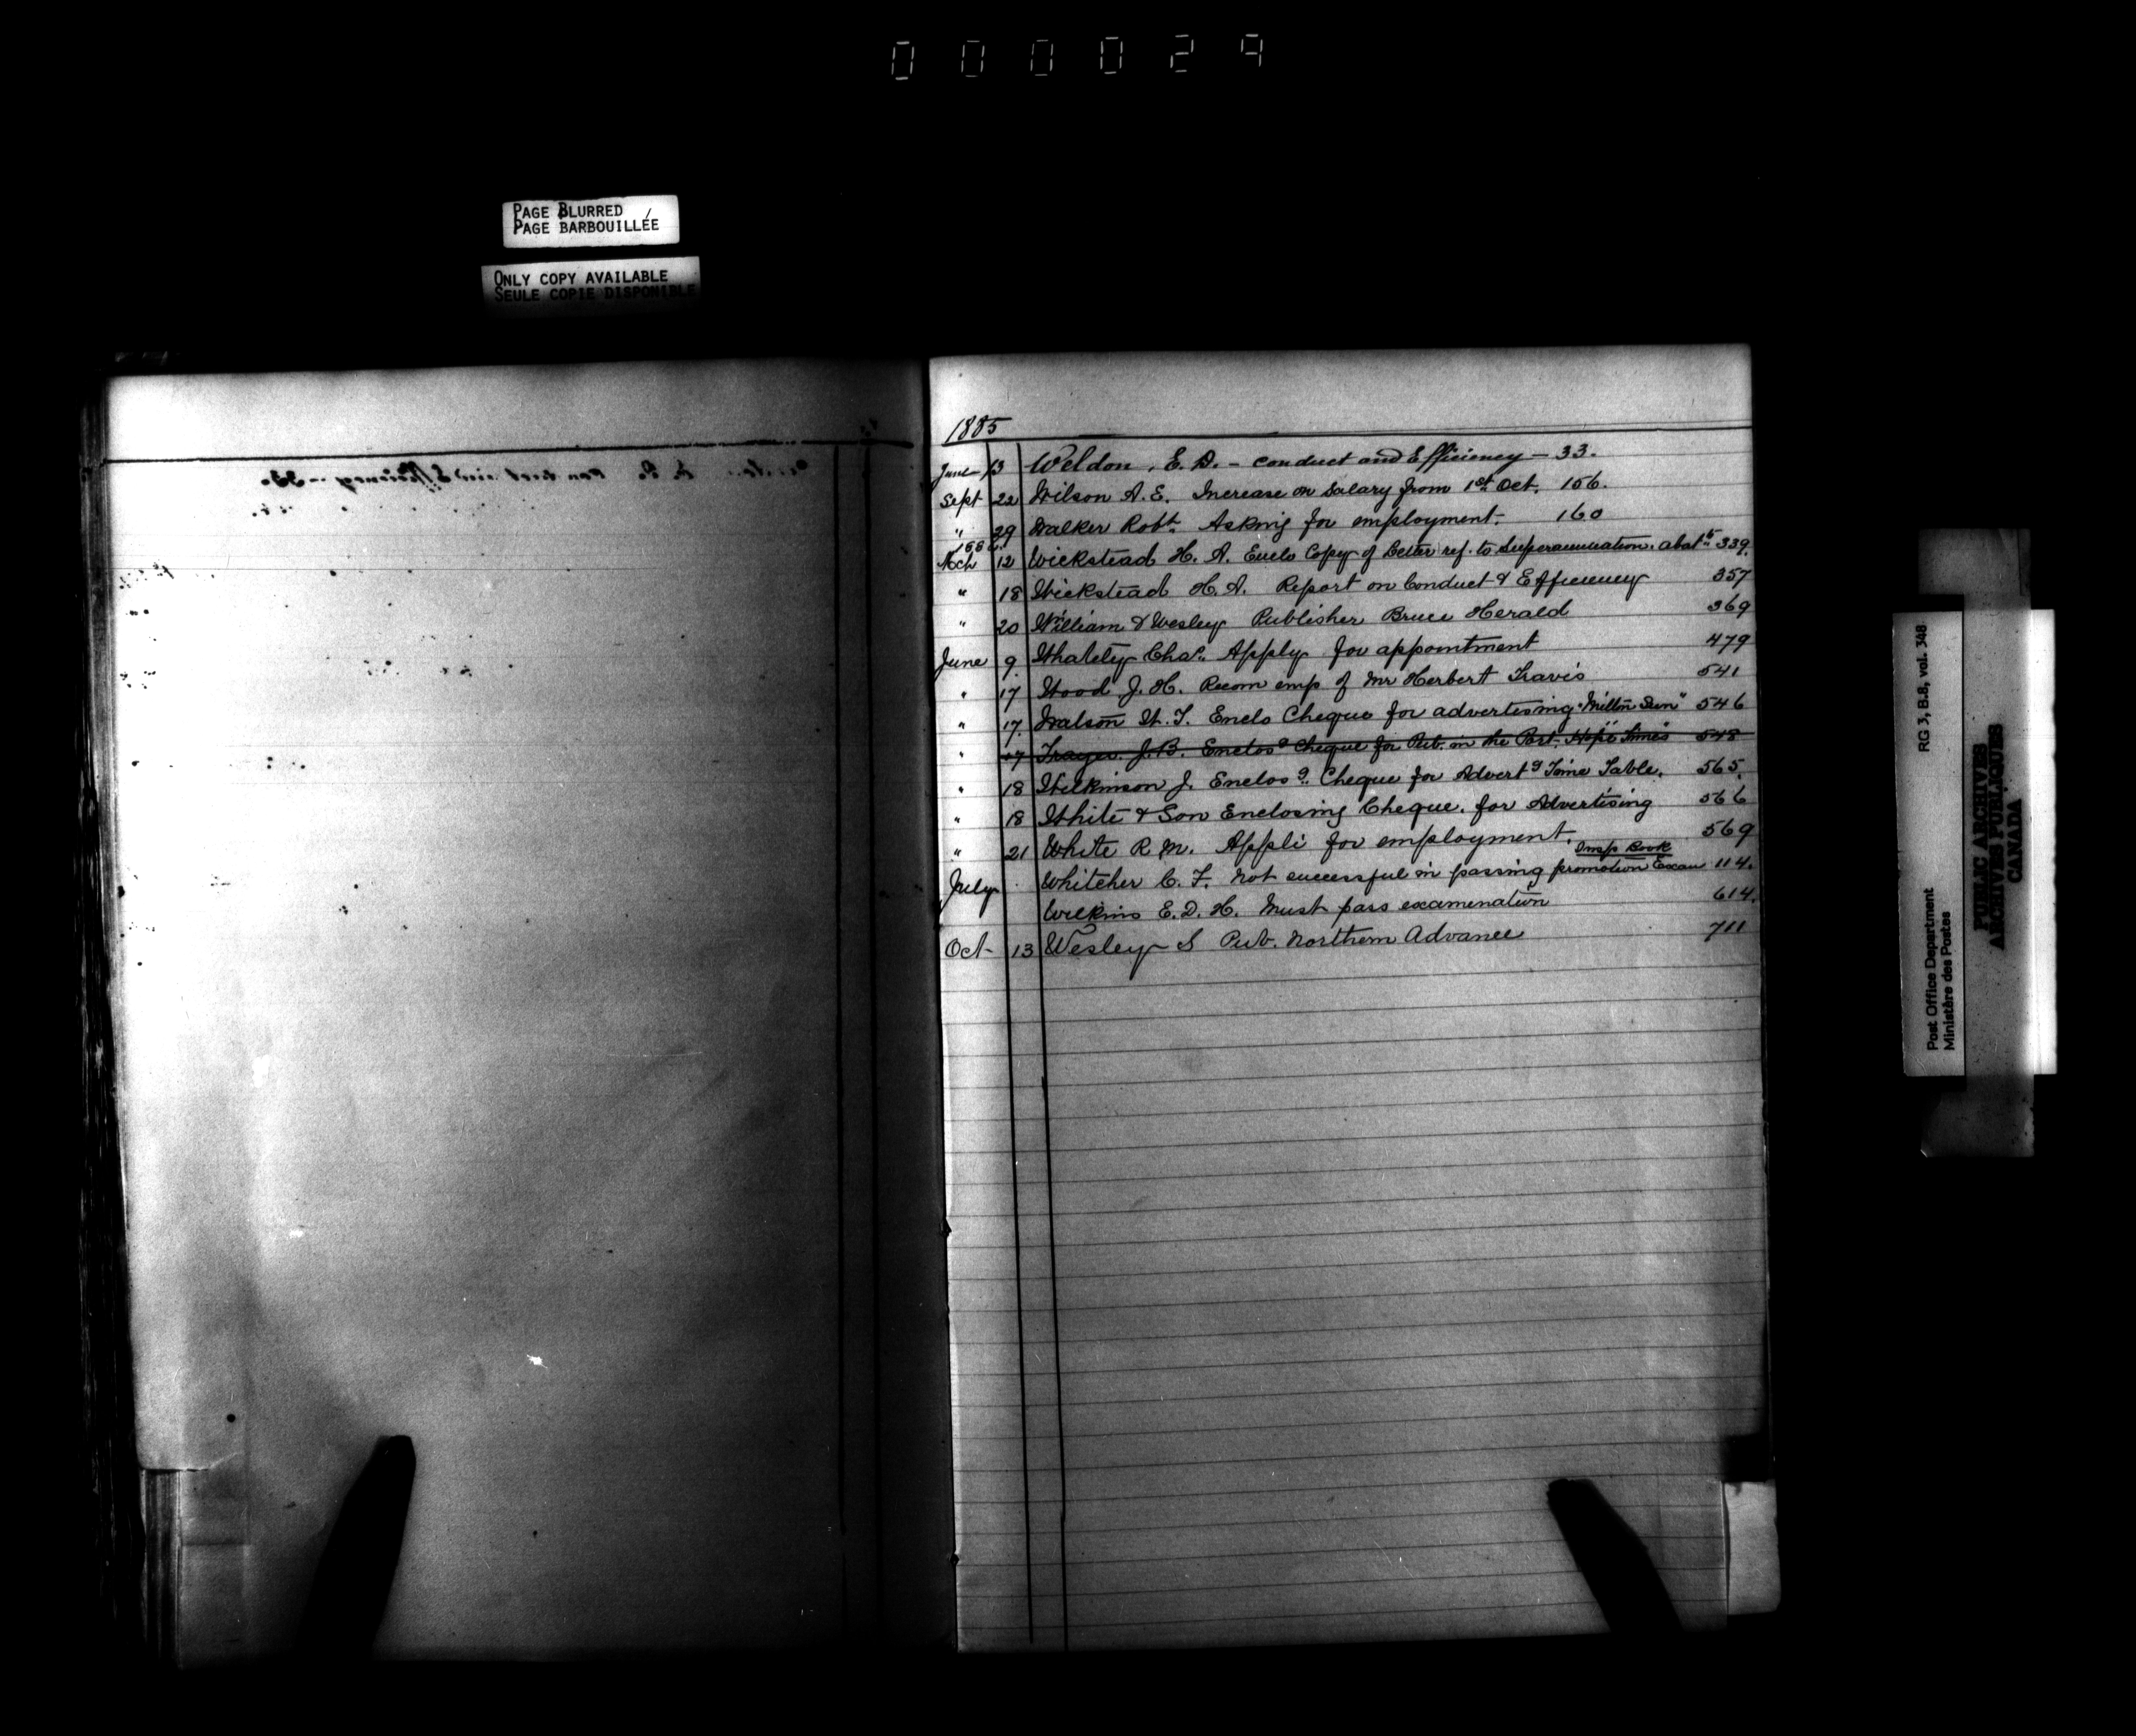 000029
PAGE BLURRED
PAGE BARBOUILLÉE
ONLY COPY AVAILABLE
SEULE COPIE DISPONIBLE
1885
June 13 Weldon, E. D. - conduct and Efficiency - 33.
Sept 22 Wilson A. E. Increase on Salary from 1st Oct. 156.
" 29 Walker Robt. Asking for employment. 160
1886
Mch 12 Wickstead H. A. Enclo Copy of Letter ref. to Superannuation. abatt 339.
" 18 Wickstead H. A. Report on Conduct & Efficiency 357
" 20 William & Wesley Publisher Bruce Herald 369
June 9. Whately Chas. Apply for appointment 479
" 17 Wood J. H. Recom emp of Mr Herbert Travis 541
" 17. Watson W. T. Enclo Cheque for advertising "Milton Sun" 546
" 17 Trayes. J. B. Enclosg Cheque for Pub. in the Port. Hope "Times" 548
" 18 Wilkinson J. Enclosg. Cheque for Advertg Time Table. 565.
" 18 White & Son Enclosing Cheque. for Advertising 566
" 21 White R. M. Appli for employment. 569
Insp Book
July Whitcher C. F. Not successful in passing promotion Exam 114.
Wilkins E. D. H. Must pass examenation 614.
Oct 13 Wesley S Pub. Northern Advance 711
RG 3, B.8, vol. 348
Post Office Department
Ministère des Postes
PUBLIC ARCHIVES
ARCHIVES PUBLIQUES
CANADA